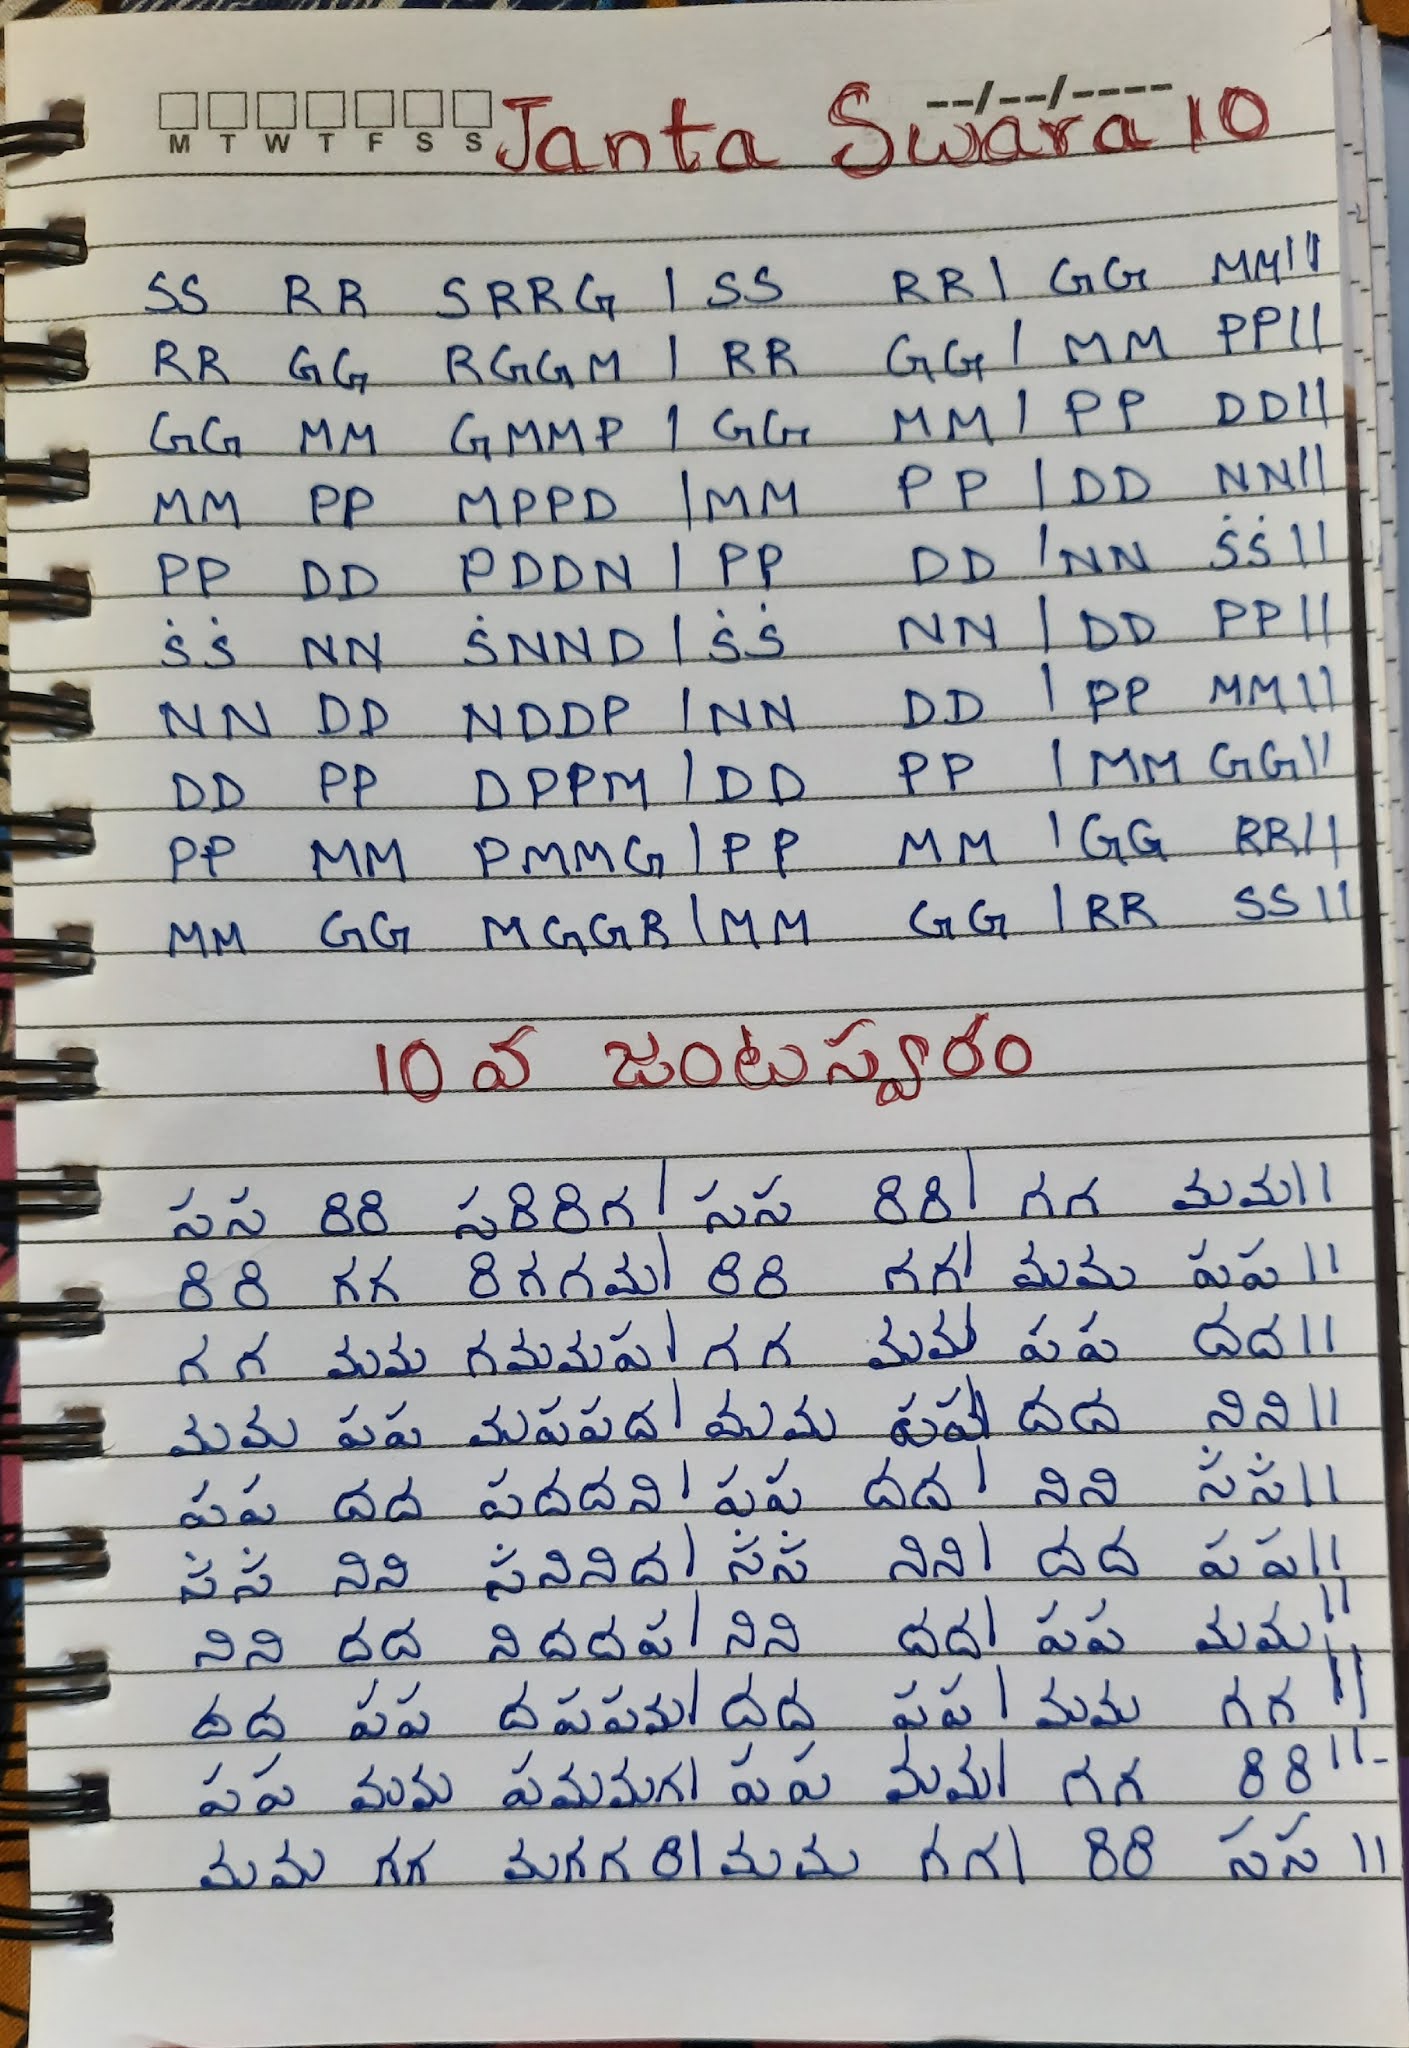 --/--/----
M T W T F S S Janta Swara 10
SS RR SRRG | SS RR | GG MM ||
RR GG RGGM | RR GG | MM PP ||
GG MM GMMP | GG MM | PP DD ||
MM PP MPPD | MM PP | DD NN ||
PP DD PDDN | PP DD | NN ṠṠ ||
ṠṠ NN ṠNND | ṠṠ NN | DD PP ||
NN DD NDDP | NN DD | PP MM ||
DD PP DPPM | DD PP | MM GG ||
PP MM PMMG | PP MM | GG RR ||
MM GG MGGR | MM GG | RR SS ||
10 వ జంటస్వరం
సస రిరి సరిరిగ | సస రిరి | గగ మమ ||
రిరి గగ రిగగమ | రిరి గగ | మమ పప ||
గగ మమ గమమప | గగ మమ | పప దద ||
మమ పప మపపద | మమ పప | దద నిని ||
పప దద పదదని | పప దద | నిని స̇స̇ ||
స̇స̇ నిని స̇నినిద | స̇స̇ నిని | దద పప ||
నిని దద నిదదప | నిని దద | పప మమ ||
దద పప దపపమ | దద పప | మమ గగ ||
పప మమ పమమగ | పప మమ | గగ రిరి ||
మమ గగ మగగరి | మమ గగ | రిరి సస ||